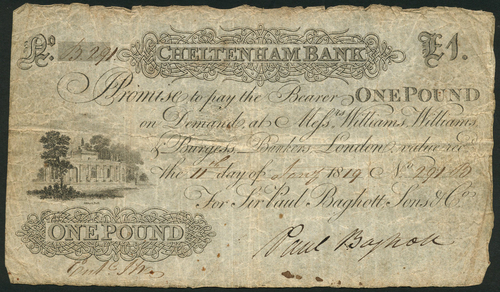 No. 15.291 CHELTENHAM BANK £1.
I Promise to pay the Bearer ONE POUND
on Demand, at Messrs Williams, Williams,
& Burgess, Bankers, London, value recd.
the 11th day of Jany 1819 No
For Sir Paul Baghott, Sons & Co.
ONE POUND
Paul Baghott
Entd.